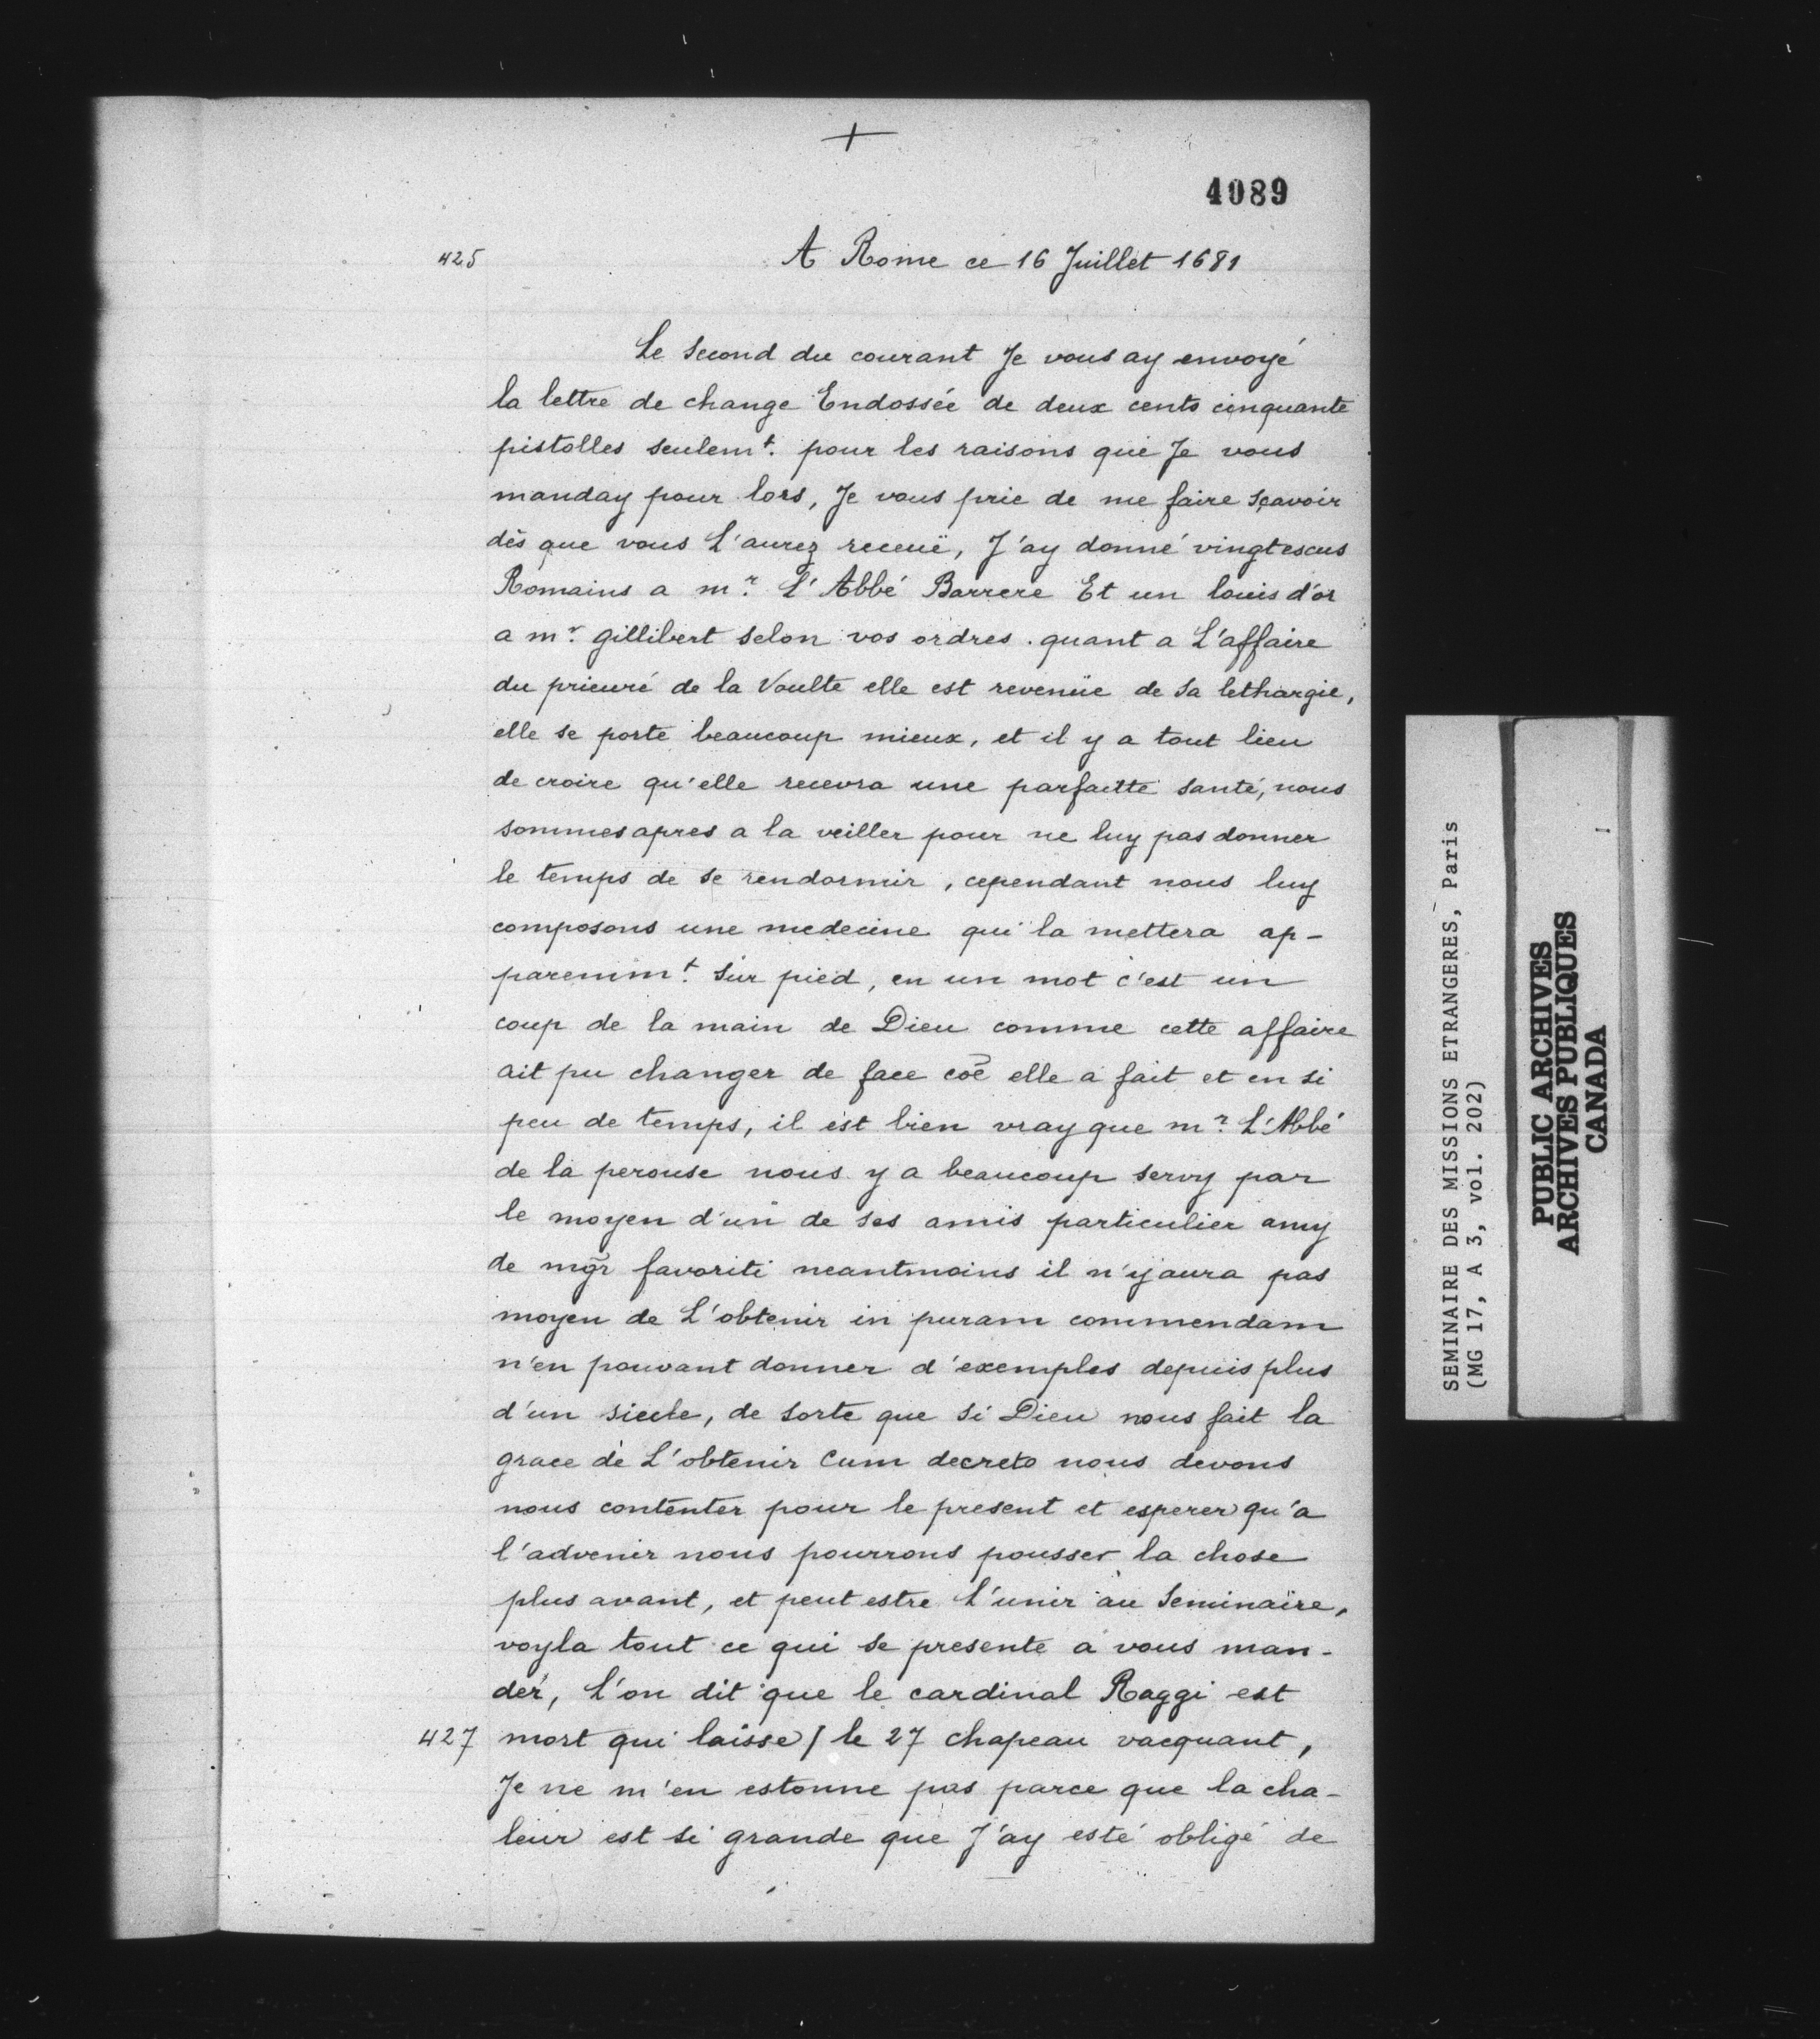 +
4089
425
A Rome ce 16 Juillet 1681
Le second du courant Je vous ay envoyé
la lettre de change Endossée de deux cents cinquante
pistolles seulemt. pour les raisons que Je vous
manday pour lors, Je vous prie de me faire sçavoir
dès que vous L'aurez receuë, J'ay donné vingt escus
Romains a mr. L'Abbé Barrere Et un louis d'or
a mr. gillibert selon vos ordres. quant a L'affaire
du prieuré de la Voulte elle est revenüe de sa lethargie,
elle se porte beaucoup mieux, et il y a tout lieu
de croire qu'elle recevra une parfaitte santé, nous
sommes apres a la veiller pour ne luy pas donner
le temps de se rendormir, cependant nous luy
composons une medecine qui la mettera ap-
paremmt. sur pied, en un mot c'est un
coup de la main de Dieu comme cette affaire
ait pu changer de face coē elle a fait et en si
peu de temps, il est bien vray que mr. L'Abbé
de la perouse nous y a beaucoup servy par
le moyen d'un de ses amis particulier amy
de mgr̃ favoriti neantmoins il n'y aura pas
moyen de L'obtenir in puram commendam
n'en pouvant donner d'exemples depuis plus
d'un siecle, de sorte que si Dieu nous fait la
grace de L'obtenir Cum decreto nous devons
nous contenter pour le present et esperer qu'a
l'advenir nous pourrons pousser la chose
plus avant, et peut estre L'unir au Seminaire,
voyla tout ce qui se presente a vous man-
der, L'on dit que le cardinal Raggi est
427 mort qui laisse / le 27 chapeau vacquant,
Je ne m'en estonne pas parce que la cha-
leur est si grande que J'ay esté obligé de
SEMINAIRE DES MISSIONS ETRANGERES, Paris
(MG 17, A 3, vol. 202)
PUBLIC ARCHIVES
ARCHIVES PUBLIQUES
CANADA